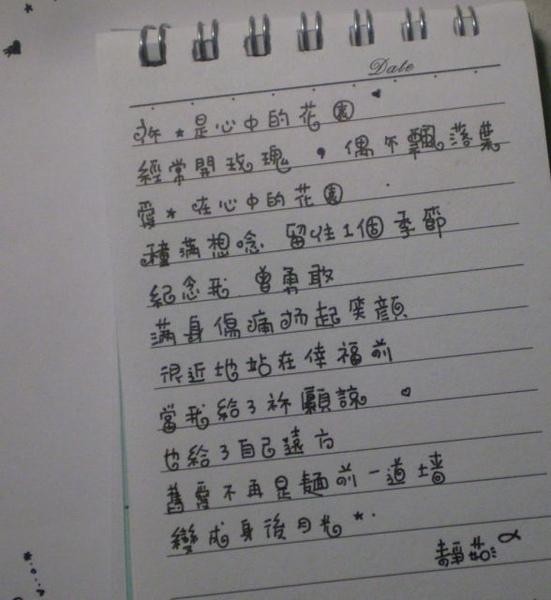 Date
妳*是心中的花園
經常開玫瑰，偶尒飄落葉
愛*在心中的花園
種滿想唸 留住1個季節
紀念我 曾勇敢
滿身傷痛揚起笑顏
很近地站在倖福前
當我給了祢願諒
也給了自己遠方
舊愛不再是麵前一道墻
變成身後月光*.
靜茹